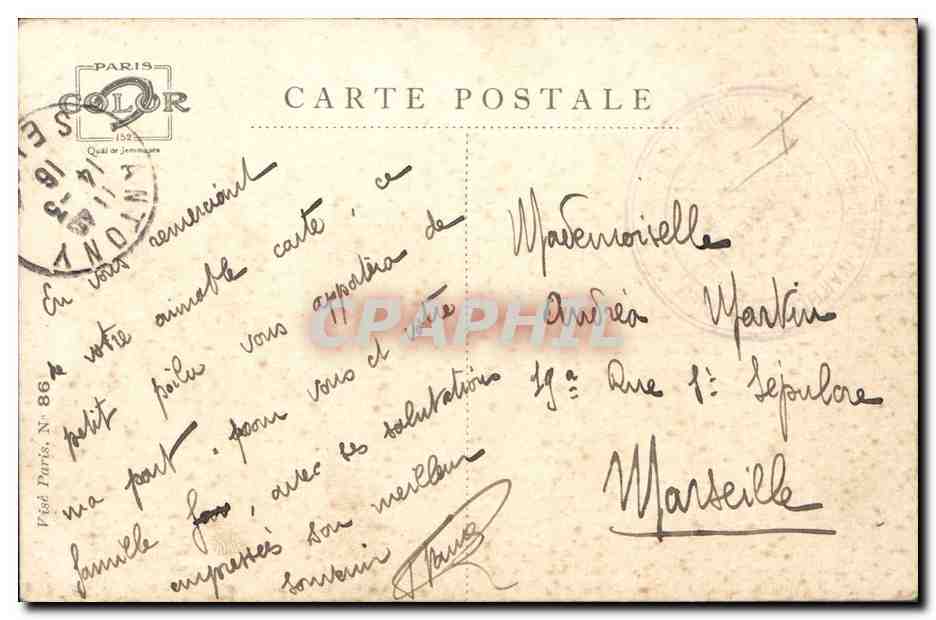 PARIS
COLOR
152
Quai de Jemmapes
CARTE POSTALE
ANTONY
14
3
16
En vous remerciant
de votre aimable carte, ce
petit poilu vous apportera de
ma part, pour vous et votre
famille, avec ses salutations
empressées son meilleur
souvenir
Mademoiselle
Andréa Martin
19a Rue St Sépulcre
Marseille
Visé Paris. No 86
CPAPHIL